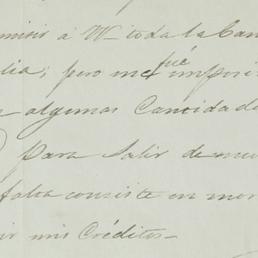 misir á W toda la Can
lia; pero me fué impósi
algunas Cantidade
Para salir de mi
falta consiste en mor
ir mis Créditos